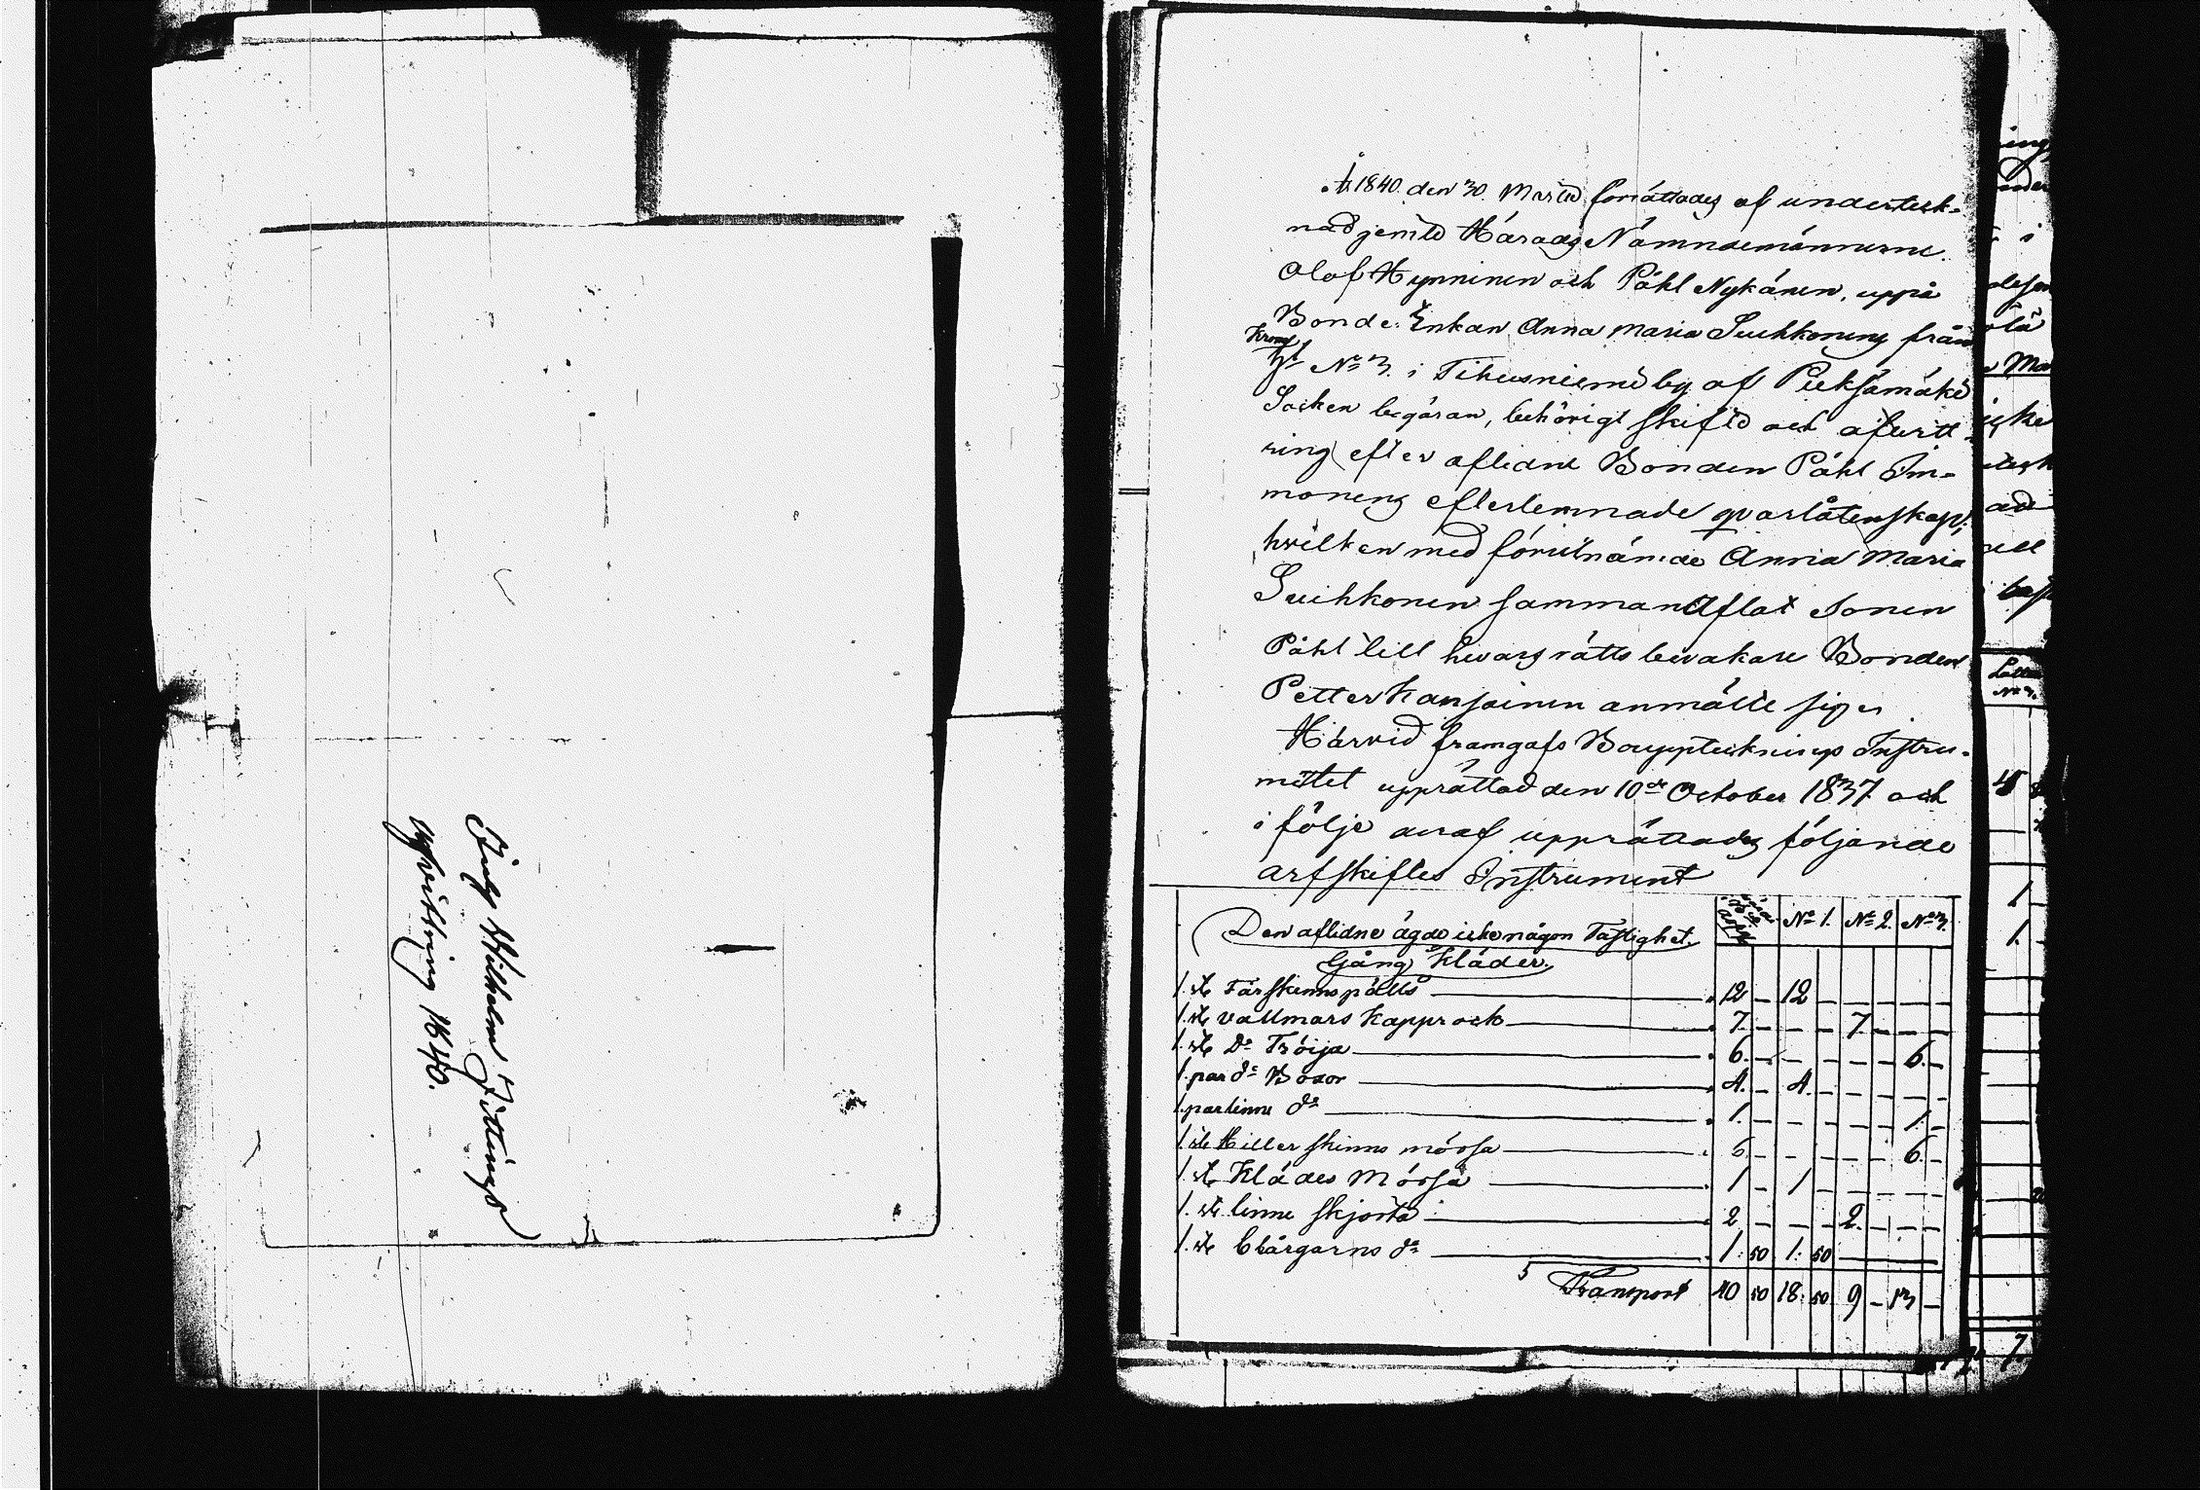 Wilhelm
Afvittring 1840.
År 1840. den 30. Martii förrättades af underteck-
nad jemte Härads Nämndemännerne
Olof Hynninen och Påhl Nykänen, uppå
Bonde. Enkan Anna Maria Suihkonens från
Krono
No 3. i Tihusniemi by af Pieksämäki
Socken begäran, behörigt skifte och afvitt-
ring efter aflidne Bonden Påhl Im-
monens efterlemnade qvarlåtenskap;
hvilken med förutnämde Anna Maria
Suihkonen sammanAflat Sonen
Påhl till hvars rätts bevakare Bonden
Petter anmälte sig.
Härvid framgafs Bouppteknings Instru-
mentet upprättad den 10de October 1837. och
i följe deraf upprättades följande
arfskiftes Instrument
No 1. No 2. No 3.
Den aflidne ägde icke någon Fastighet.
Gång Kläder.
1. st Fårskinns pälts 12 – 12 – – – – –
1. st vallmars Kapprock 7. – – – 7. – – –
1. st Do Tröija 6. – – – – – 6. –
1. par do Boxor 4. – 4. – – – – –
1. par linne do 1. – – – – – 1. –
1. st Hillerskinns mössa 6. – – – – – 6. –
1. st Klädes Mössa 1 – 1 – – – – –
1. st linne skjorta 2 – – – 2. – – –
1. st Blårgarns do 1. 50 1. 50
Transport 40 50 18. 50 9 – 13 –